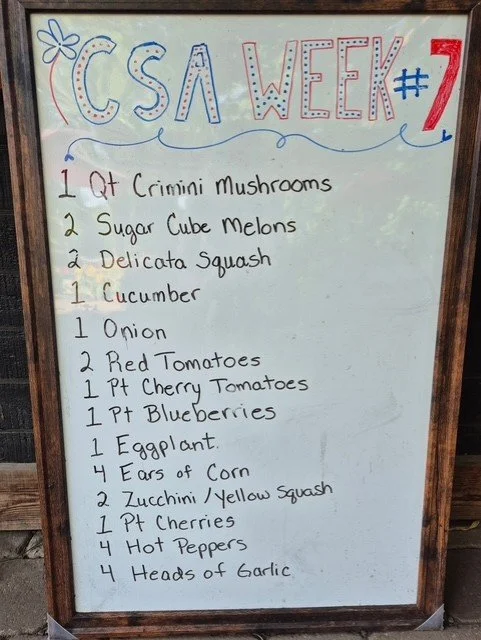 CSA WEEK #7
1 Qt Crimini Mushrooms
2 Sugar Cube Melons
2 Delicata Squash
1 Cucumber
1 Onion
2 Red Tomatoes
1 Pt Cherry Tomatoes
1 Pt Blueberries
1 Eggplant
4 Ears of Corn
2 Zucchini / Yellow Squash
1 Pt Cherries
4 Hot Peppers
4 Heads of Garlic